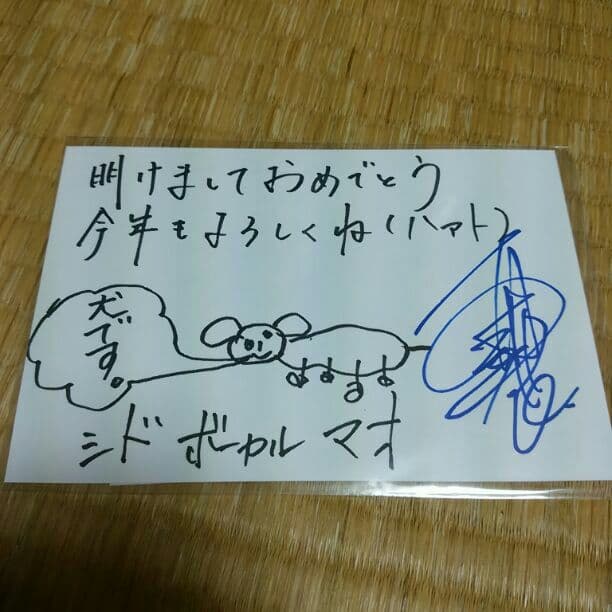 明けましておめでとう
今年もよろしくね(ハァト)
犬です。
シド ボーカル マオ